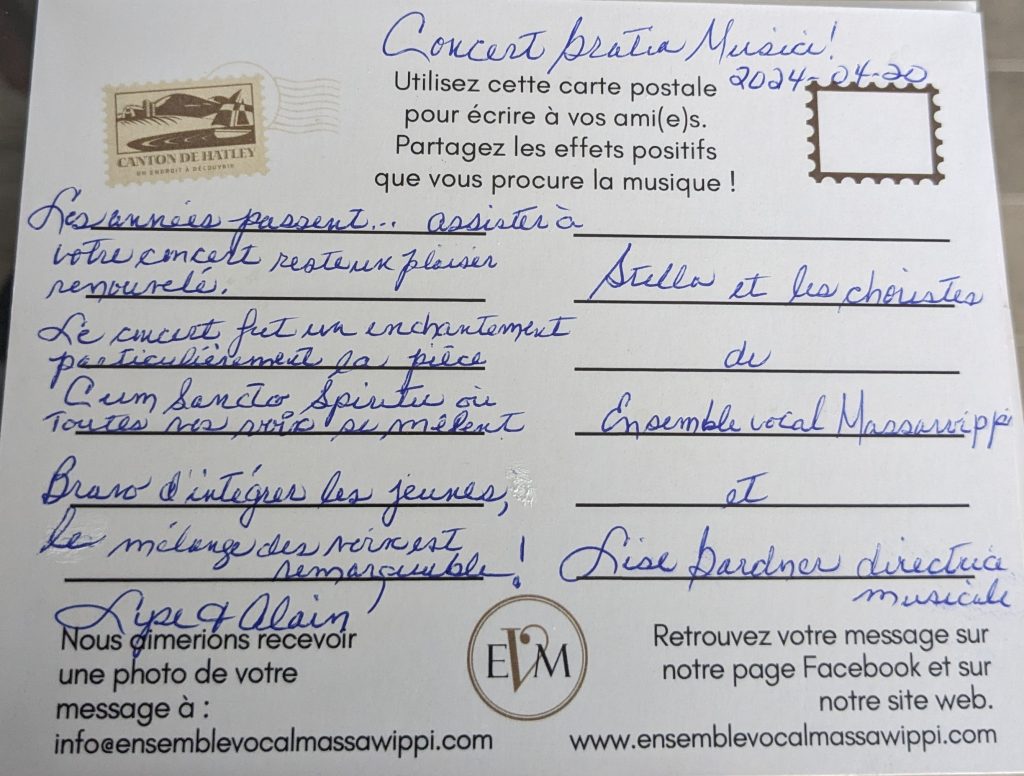 Concert Gratia Musici!
2024-04-20
Utilisez cette carte postale
pour écrire à vos ami(e)s.
Partagez les effets positifs
que vous procure la musique !
CANTON DE HATLEY
UN ENDROIT À DÉCOUVRIR
Les années passent... assister à
votre concert reste un plaisir
renouvelé.
Le concert fut un enchantement
particulièrement la pièce
Cum Sancto Spiritu où
toutes vos voix se mêlent
Bravo d'intégrer les jeunes,
le mélange des voix est
remarquable!
Lyse & Alain
Stella et les choristes
de
Ensemble vocal Massawippi
et
Lise Gardner directrice
musicale
Nous aimerions recevoir
une photo de votre
message à :
info@ensemblevocalmassawippi.com
EVM
Retrouvez votre message sur
notre page Facebook et sur
notre site web.
www.ensemblevocalmassawippi.com